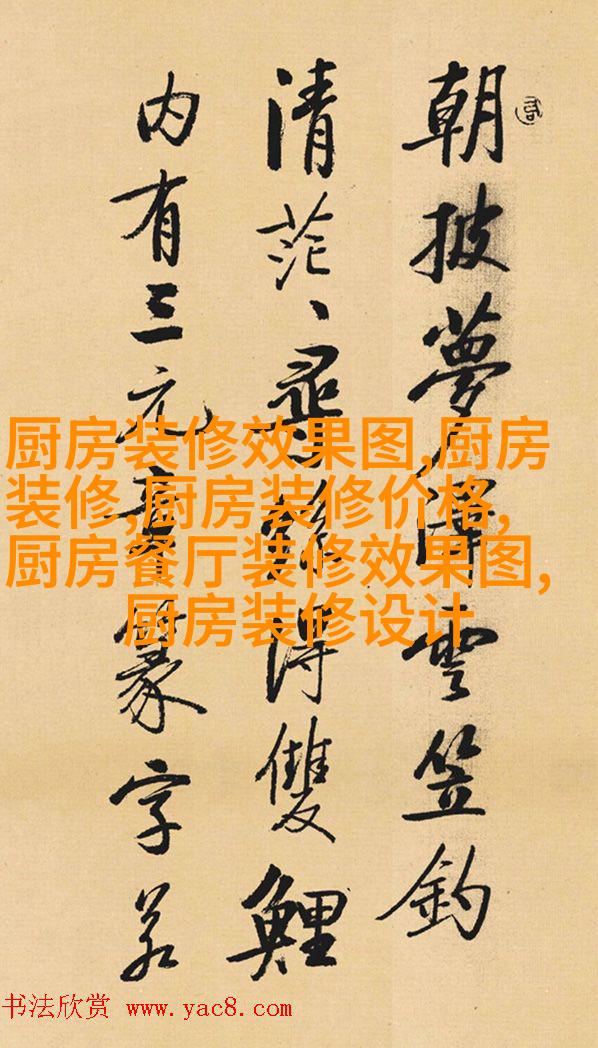 朝披夢澤雲笠釣
清茫、尋絲得雙鯉
内有三元章篆字若
厨房装修效果图,厨房
装修,厨房装修价格,
厨房餐厅装修效果图,
厨房装修设计
书法欣赏 www.yac8.com